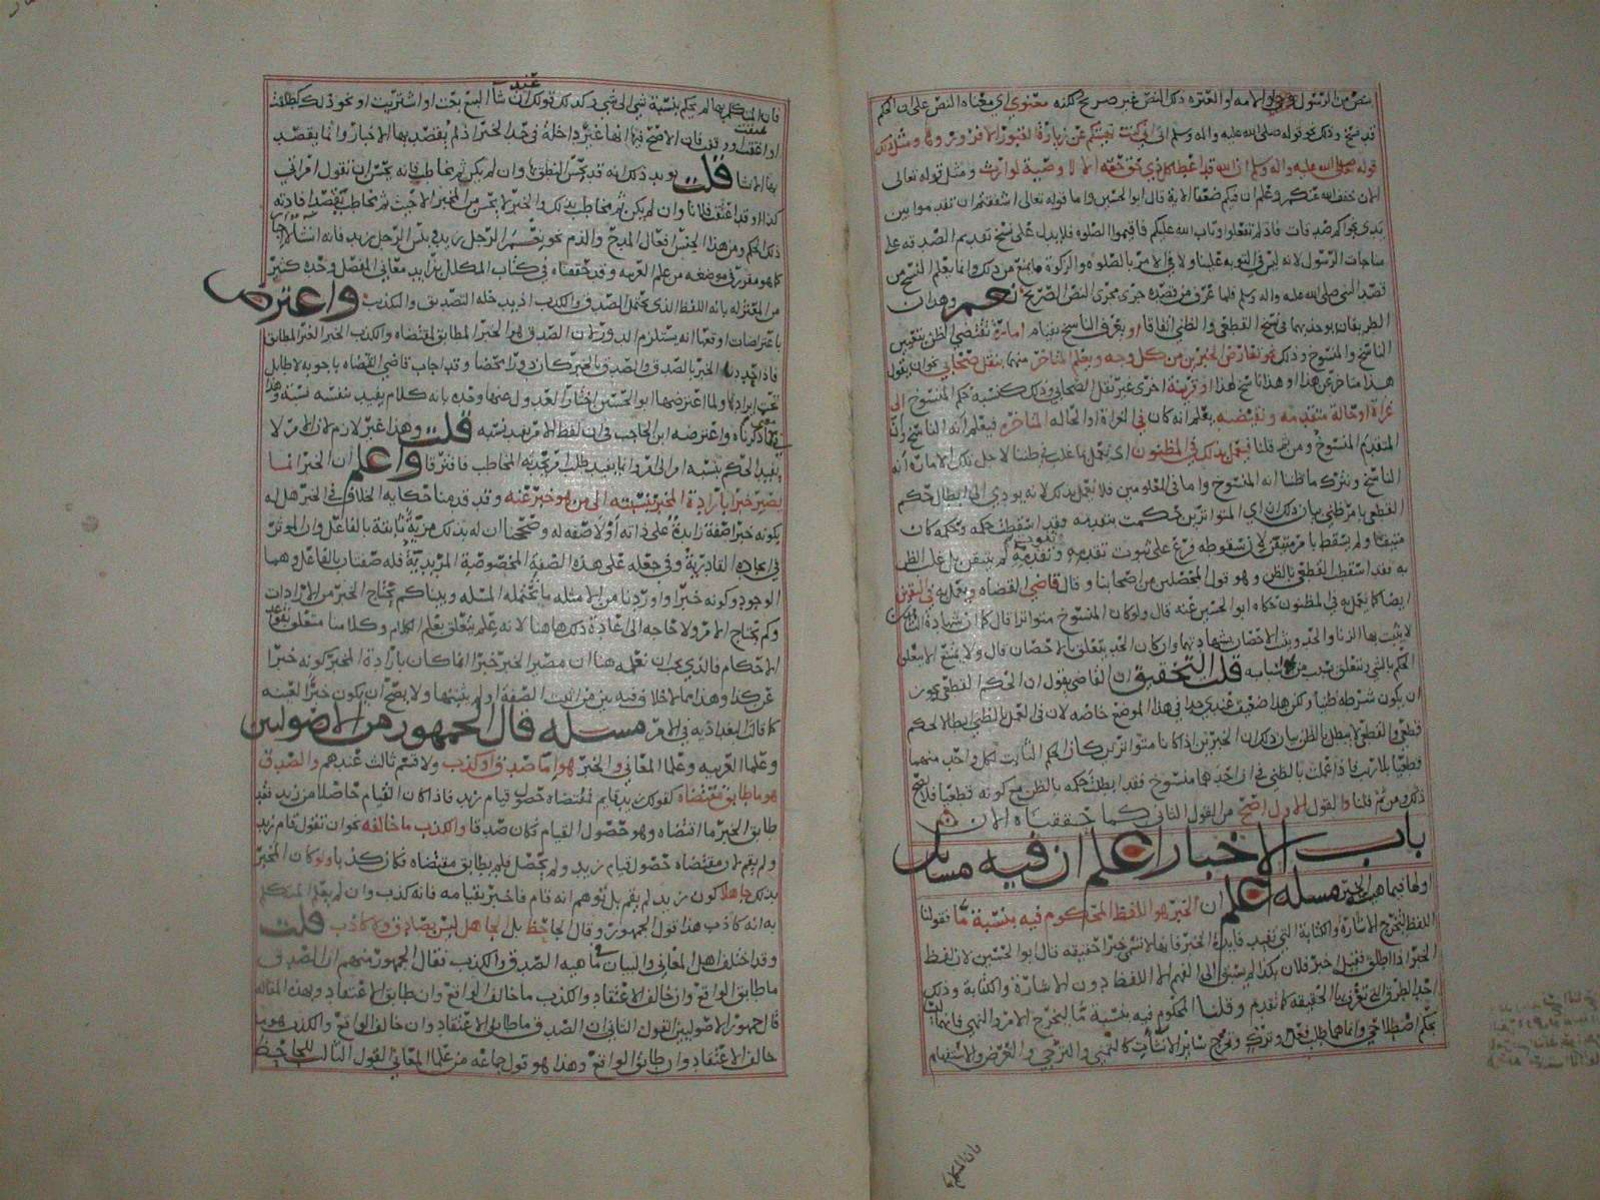 بنص من الرسول او الامه او العتره ذلك النص غير صريح لكنه معنوي اي معناه النص على ان الحكم
قد نسخ وذلك نحو قوله صلى الله عليه واله وسلم اني كنت نهيتكم عن زيارة القبور الا فزوروها ومثل ذلك
قوله صلى الله عليه واله وسلم ان الله قد اعطا كل ذي حق حقه الا لا وصية لوارث ومثل قوله تعالى
الان خفف الله عنكم وعلم ان فيكم ضعفا الاية قال ابو الحسين واما قوله تعالى ااشفقتم ان تقدموا بين
يدي نجواكم صدقات فاذ لم تفعلوا وتاب الله عليكم فاقيموا الصلوه فلا يدل على نسخ تقديم الصدقه على
مناجات الرسول لانه ليس في التوبه علينا ولا في الامر بالصلوه والزكوة ما يمنع من ذلك وانما يعلم النسخ من
قصد النبي صلى الله عليه واله وسلم فلما عرف من قصده جرى مجرى النص الصريح نعم وهذان
الطريقان يوخذ بهما في نسخ القطعي والظني اتفاقا او يعرف الناسخ بقيام امارة تقتضي الظن بتعيين
الناسخ والمنسوخ وذلك نحو تعارض الخبرين من كل وجه ويعلم المتاخر منهما بنقل صحابي نحو ان يقول
هذا متاخر عن هذا او هذا ناسخ لهذا او قرينة اخرى غير نقل الصحابي وذلك كنسبة حكم المنسوخ الى
غزاة او حالة متقدمه ونقيضه يعلم انه كان في الغزاة او الحاله المتاخره فيعلم انه الناسخ وان
المتقدم المنسوخ ومن ثم قلنا فيعمل بذلك في المظنون اي يعمل بما غلب في ظننا لاجل تلك الاماره انه
الناسخ ونترك ما ظننا انه المنسوخ واما في المعلومين فلا يعمل بذلك لانه يودي الى ابطال حكم
القطعي بامر ظني بيان ذلك ان اي المتواترين حكمت بتقدمه فقد اسقطت حكمه وحكمه كان
متيقنا ولم يسقط بامر متيقن لان سقوطه فرع على ثبوت تقدمه وتقدمه لم يتيقن بل غلب الظن
به فقد اسقطت القطعي بالظن وهو قول المحصلين من اصحابنا وقال قاضي القضاه ويعمل به في المتيقن
ايضا كما يعمل به في المظنون حكاه ابو الحسين عنه قال ولو كان المنسوخ متواترا قال كما ان شهادة الشاهدين
لا يثبت بها الزنا والحد ويثبت الاحصان بشهادتهما وان كان الحد يتعلق بالاحصان قال ولا يمتنع الا يتعلق
الحكم بالشي ويتعلق بسبب من اسبابه قلت التحقيق ان القاضي يقول ان الحكم القطعي يجوز
ان يكون شرطه ظنيا ولكن هذا ضعيف عندي جدا في هذا الموضع خاصه لان في العمل بالظني ابطالا لحكم
قطعي والقطعي لا يبطل بالظن بيان ذلك ان الخبرين اذا كانا متواترين كان الحكم الثابت لكل واحد منهما
قطعيا بلا ريب فاذا عملت بالظني في ان احدهما منسوخ فقد ابطلت حكمه بالظن مع كونه قطعيا فلا يصح
ذلك ومن ثم قلنا والقول الاول اصح من القول الثاني كما حققناه الان
باب الاخبار اعلم ان فيه مسائل
اولها فيما هية الخبر مسئله اعلم ان الخبر هو اللفظ المحكوم فيه بنسبة ما فقولنا
اللفظ لتخرج الاشارة والكتابة التي تفيد فايدة الخبر فانها لا تسمى خبرا حقيقه قال ابو الحسين لان لفظ
الخبر اذا اطلق فقيل اخبر فلان بكذا لم يسبق الى الفهم الا اللفظ دون الاشارة والكتابة وذلك
احد الطرق التي تعرف بها الحقيقة كما تقدم وقلنا المحكوم فيه بنسبة ما ليخرج الامر والنهي فانهما ليسا
بحكم اصطلاحي وانما هما طلب فعل وترك وتخرج سائر الانشآت كالتمني والترجي والعرض والاستفهام
فان المتكلم
فان المتكلم بها لم يحكم بنسبة شي الى شي وكذلك قولك عند انشآ البيع بعت او اشتريت او نحو ذلك كطلقت
او اعتقت فان الاصح فيها انها غير داخلة في حد الخبر اذ لم يقصد بها الاخبار وانما يقصد
بها الانشا قلت يويد ذلك انه قد يحسن النطق بها وان لم يكن ثم مخاطب فانه يحسن ان تقول امراتي
كذا او قد اعتقت فلانا وان لم يكن ثم مخاطب بذلك والخبر لا يحسن من المخبر الا حيث ثم مخاطب يقصد افادته
ذلك الحكم ومن هذا الجنس افعال المدح والذم نحو نعم الرجل زيد وبئس الرجل زيد فانه انشا لا اخبار
كما هو مقرر في موضعه من علم العربيه وقد حققناه في كتاب المكلل بفرايد معاني المفصل وحده كثير
من المعتزله بانه اللفظ الذي يحتمل الصدق والكذب اي يدخله التصديق والتكذيب واعترض
باعتراضات اوقعها انه يستلزم الدور لان الصدق هو الخبر المطابق لمقتضاه والكذب الخبر الغير المطابق
فاذا حد الخبر بالصدق والصدق بالخبر كان دورا محضا وقد اجاب قاضي القضاه باجوبه لا طايل
تحت ايرادها ولما اعترضها ابو الحسين اختار العدول عنها وحده بانه كلام يفيد بنفسه نسبة وهذا
ذكرناه واعترضه ابن الحاجب في ان لفظ الامر يفيد بنفسه قلت وهذا غير لازم لان الامر لا
يفيد الحكم بنسبة امر الى امر وانما يفيد طلب امر من المخاطب فافترقا واعلم ان الخبر انما
يصير خبرا بارادة المخبر بنسبته الى من هو خبر عنه وقد قدمنا حكاية الخلاف في الخبر هل له
بكونه خبرا صفة زايدة على ذاته او لا صفه له وصححنا ان له بذلك مزية ثابتة بالفاعل وان الموثر
في ايجاده القادرية وفي جعله على هذه الصفة المخصوصة المريدية فله صفتان بالفاعل وهما
الوجود وكونه خبرا واوردنا من الامثله ما تحتمله المسئله وبينا كم يحتاج الخبر من الارادات
وكم يحتاج الامر ولا حاجه الى اعادة ذلك هاهنا لانه علم يتعلق بعلم الكلام وكلامنا متعلق بقواعد
الاحكام فالذي يجب ان تعلمه هنا ان مصير الخبر خبرا انما كان بارادة المخبر كونه خبرا
عن كذا وهذا مما لا خلاف فيه بين من اثبت الصفة او لم يثبتها ولا يصح ان يكون خبرا لعينه
كما قالت البغداديه في الامر مسئله قال الجمهور من الاصوليين
وعلما العربيه وعلما المعاني والخبر هو اما صدق او كذب ولا قسم ثالث عندهم والصدق
هو ما طابق مقتضاه كقولك زيد قايم فمقتضاه حصول قيام زيد فاذا كان القيام حاصلا من زيد فقد
طابق الخبر ما اقتضاه وهو حصول القيام فكان صدقا والكذب ما خالفه نحو ان تقول قام زيد
ولم يقم لان مقتضاه حصول قيام زيد ولم يحصل فلم يطابق مقتضاه فكان كذبا ولو كان المخبر
بذلك جاهلا كون زيد لم يقم بل توهم انه قام فاخبر بقيامه فانه كذب وان لم يعلم المتكلم
به انه كاذب هذا قول الجمهور وقال الجاحظ بل الجاهل ليس بصادق ولا كاذب قلت
وقد اختلف اهل المعاني والبيان في ماهية الصدق والكذب فقال الجمهور منهم ان الصدق
ما طابق الواقع وان خالف الاعتقاد والكذب ما خالف الواقع وان طابق الاعتقاد وبهذه المقاله
قال جمهور الاصوليين القول الثاني ان الصدق ما طابق الاعتقاد وان خالف الواقع والكذب هو ما
خالف الاعتقاد وان طابق الواقع وهذا هو قول جماعه من علما المعاني القول الثالث للجاحظ